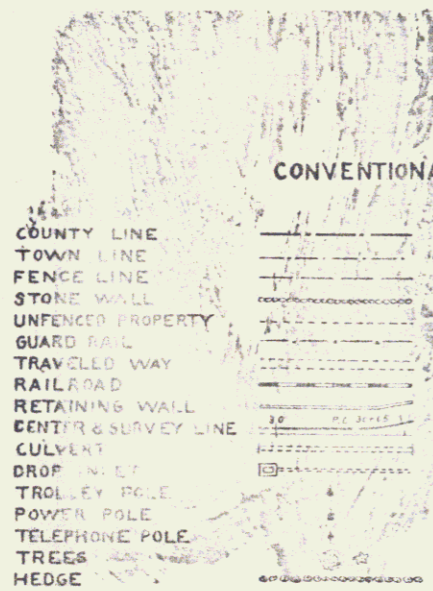 CONVENTIONA
COUNTY LINE
TOWN LINE
FENCE LINE
STONE WALL
UNFENCED PROPERTY
GUARD RAIL
TRAVELED WAY
RAILROAD
RETAINING WALL
CENTER & SURVEY LINE
CULVERT
DROP INLET
TROLLEY POLE
POWER POLE
TELEPHONE POLE
TREES
HEDGE